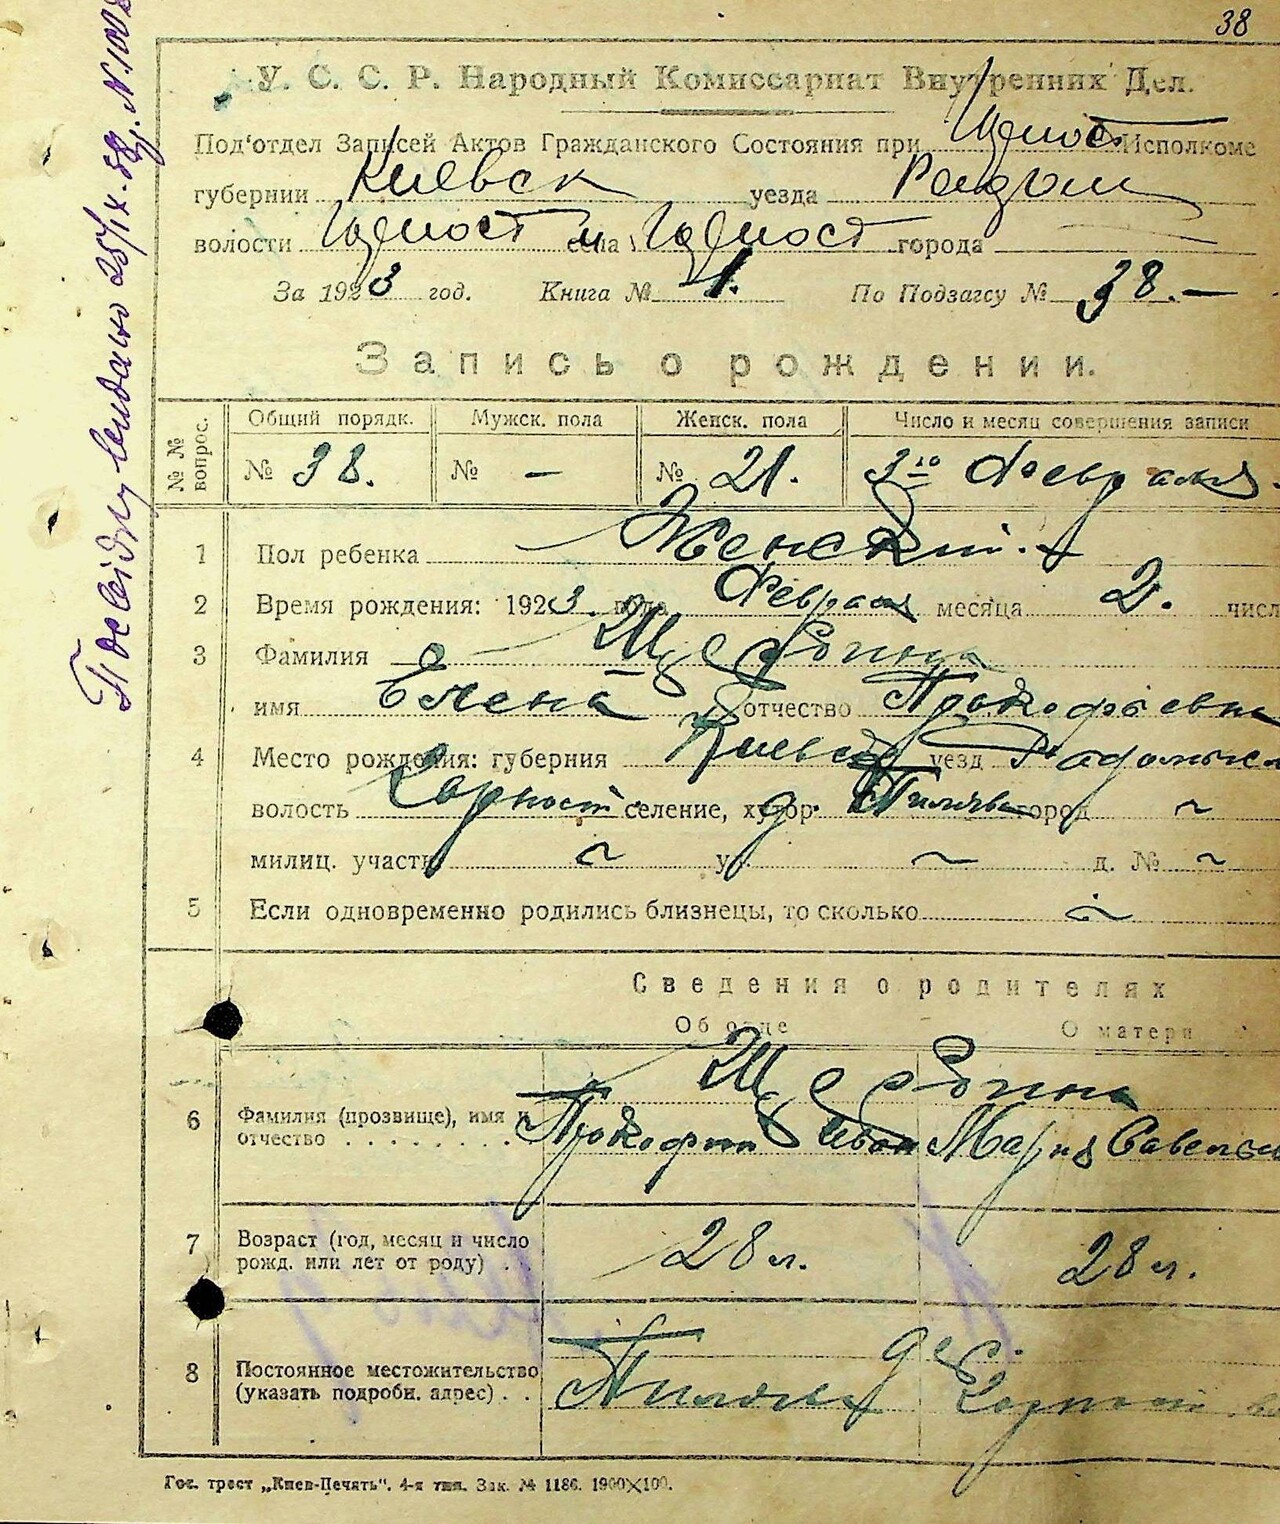 38
У. С. С. Р. Народный Комиссариат Внутренних Дел.
Под‘отдел Записей Актов Гражданского Состояния при Исполкоме
губернии Киевск уезда
волости села города
За 1923 год. Книга № 1. По Подзагсу № 38. —
Запись о рождении.
№ № вопрос.
Общий порядк. Мужск. пола Женск. пола Число и месяц совершения записи
№ 38. № — № 21. 3го Февраля
1 Пол ребенка Женский.
2 Время рождения: 1923. года Февраля месяца 2. числ
3 Фамилия Щербина
имя Елена отчество Прокофьевна
4 Место рождения: губерния Киевск уезд Радомысл
волость селение, хутор д. город ~
милиц. участ ~ у ~ д. № ~
5 Если одновременно родились близнецы, то сколько ~
Сведения о родителях
Об отце О матери
Щербина
6 Фамилия (прозвище), имя и
отчество . . . . . . . . Прокофий Иван Мария Савельев
7 Возраст (год, месяц и число
рожд. или лет от роду) . . 28 л. 28 л.
8 Постоянное местожительство
(указать подробн. адрес) . .
дер.
Гос. трест „Киев-Печать“. 4-я тип. Зак. № 1186. 1900×100.